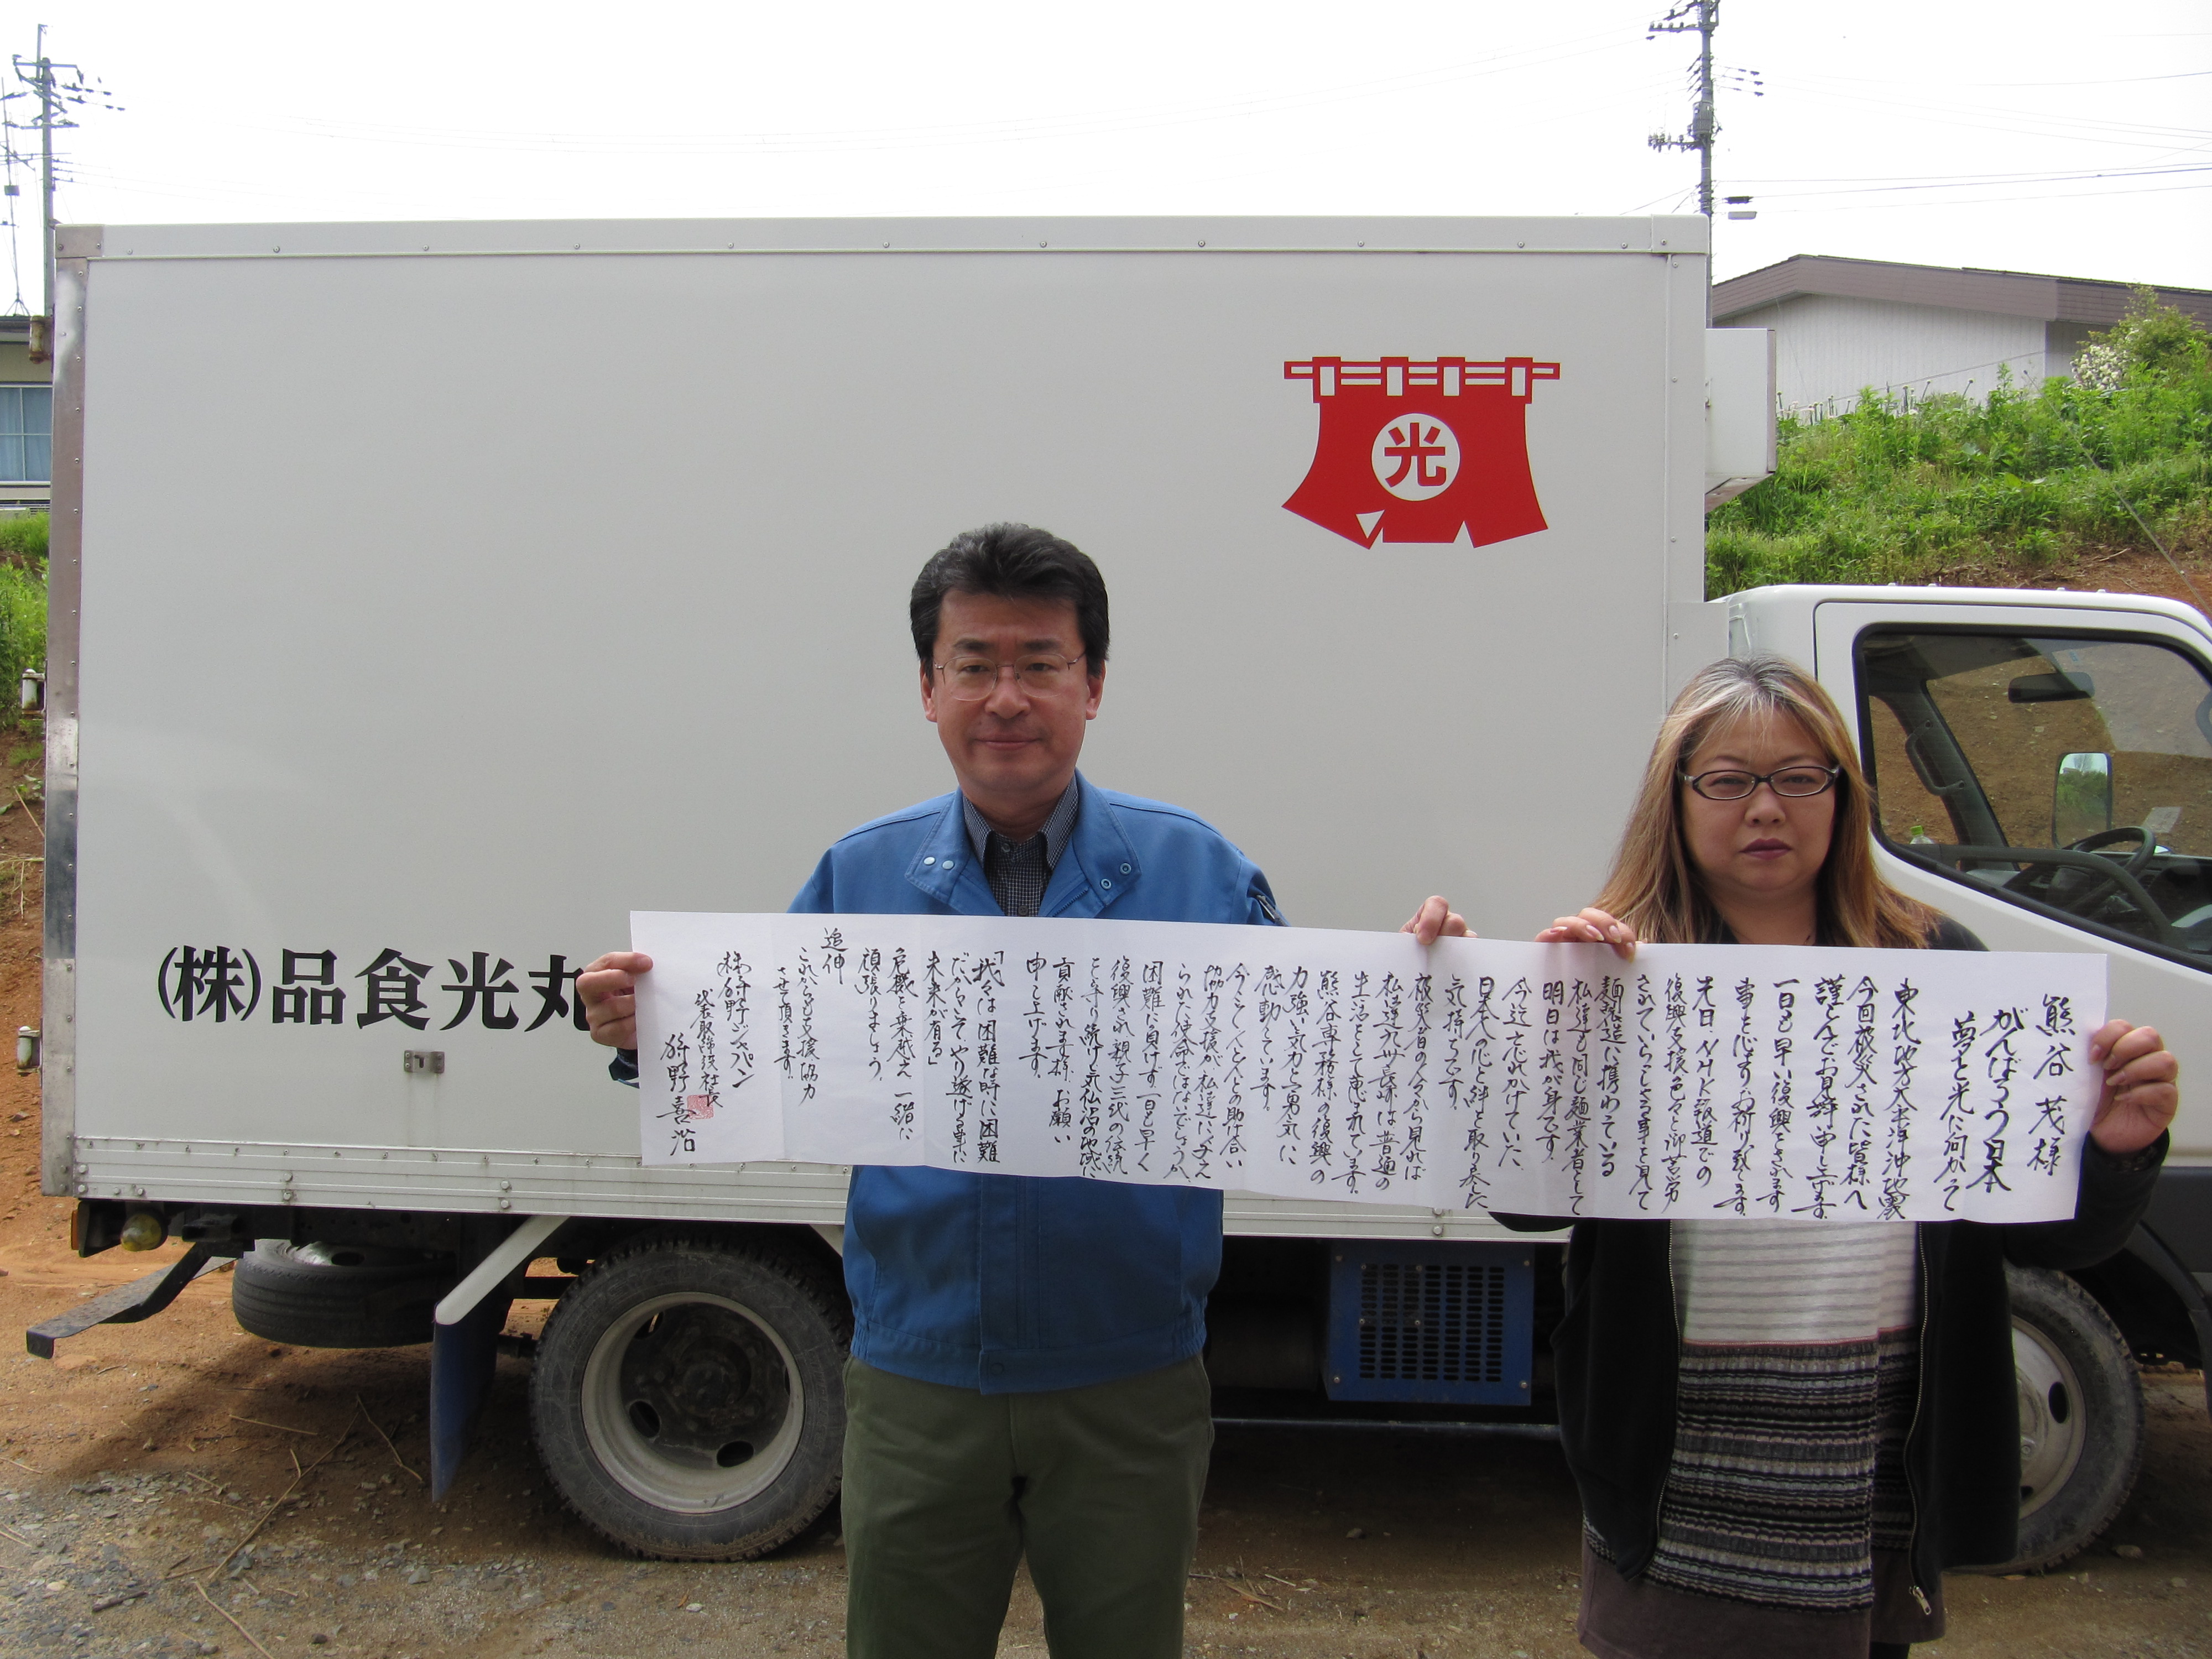 光
(株)品食光丸
熊谷 茂様
がんばろう日本
夢と光に向かって
東北地方太平洋沖地震
今回被災された皆様へ
謹んでお見舞申し上げます。
一日も早い復興をされます
事を心よりお祈り致します。
先日、NHK報道での
復興支援色々と御苦労
されていらっしゃる事を見て
麺製造に携わっている
私達も同じ麺業者として
明日は我が身です。
今迄で忘れかけていた
日本人の心と絆を取り戻した
気持ちです。
被災者の方々から見れば
私達九州長崎は普通の
生活をとても恵まれています。
熊谷専務様の復興の
力強い気力と勇気に
感動しています。
今こそ人と人との助け合い
協力支援が、私達に与え
られた使命ではないでしょうか。
困難に負けず一日も早く
復興され親子三代の伝統
を守り続けて気仙沼の地域に
貢献されます様、お願い
申し上げます。
「我々は困難な時に困難
だからこそ、やり遂げる事に
未来が有る」
危機を乗越え一緒に
頑張りましょう。
追伸
これからも支援協力
させて頂きます。
狩野ジャパン
代表取締役社長
狩野